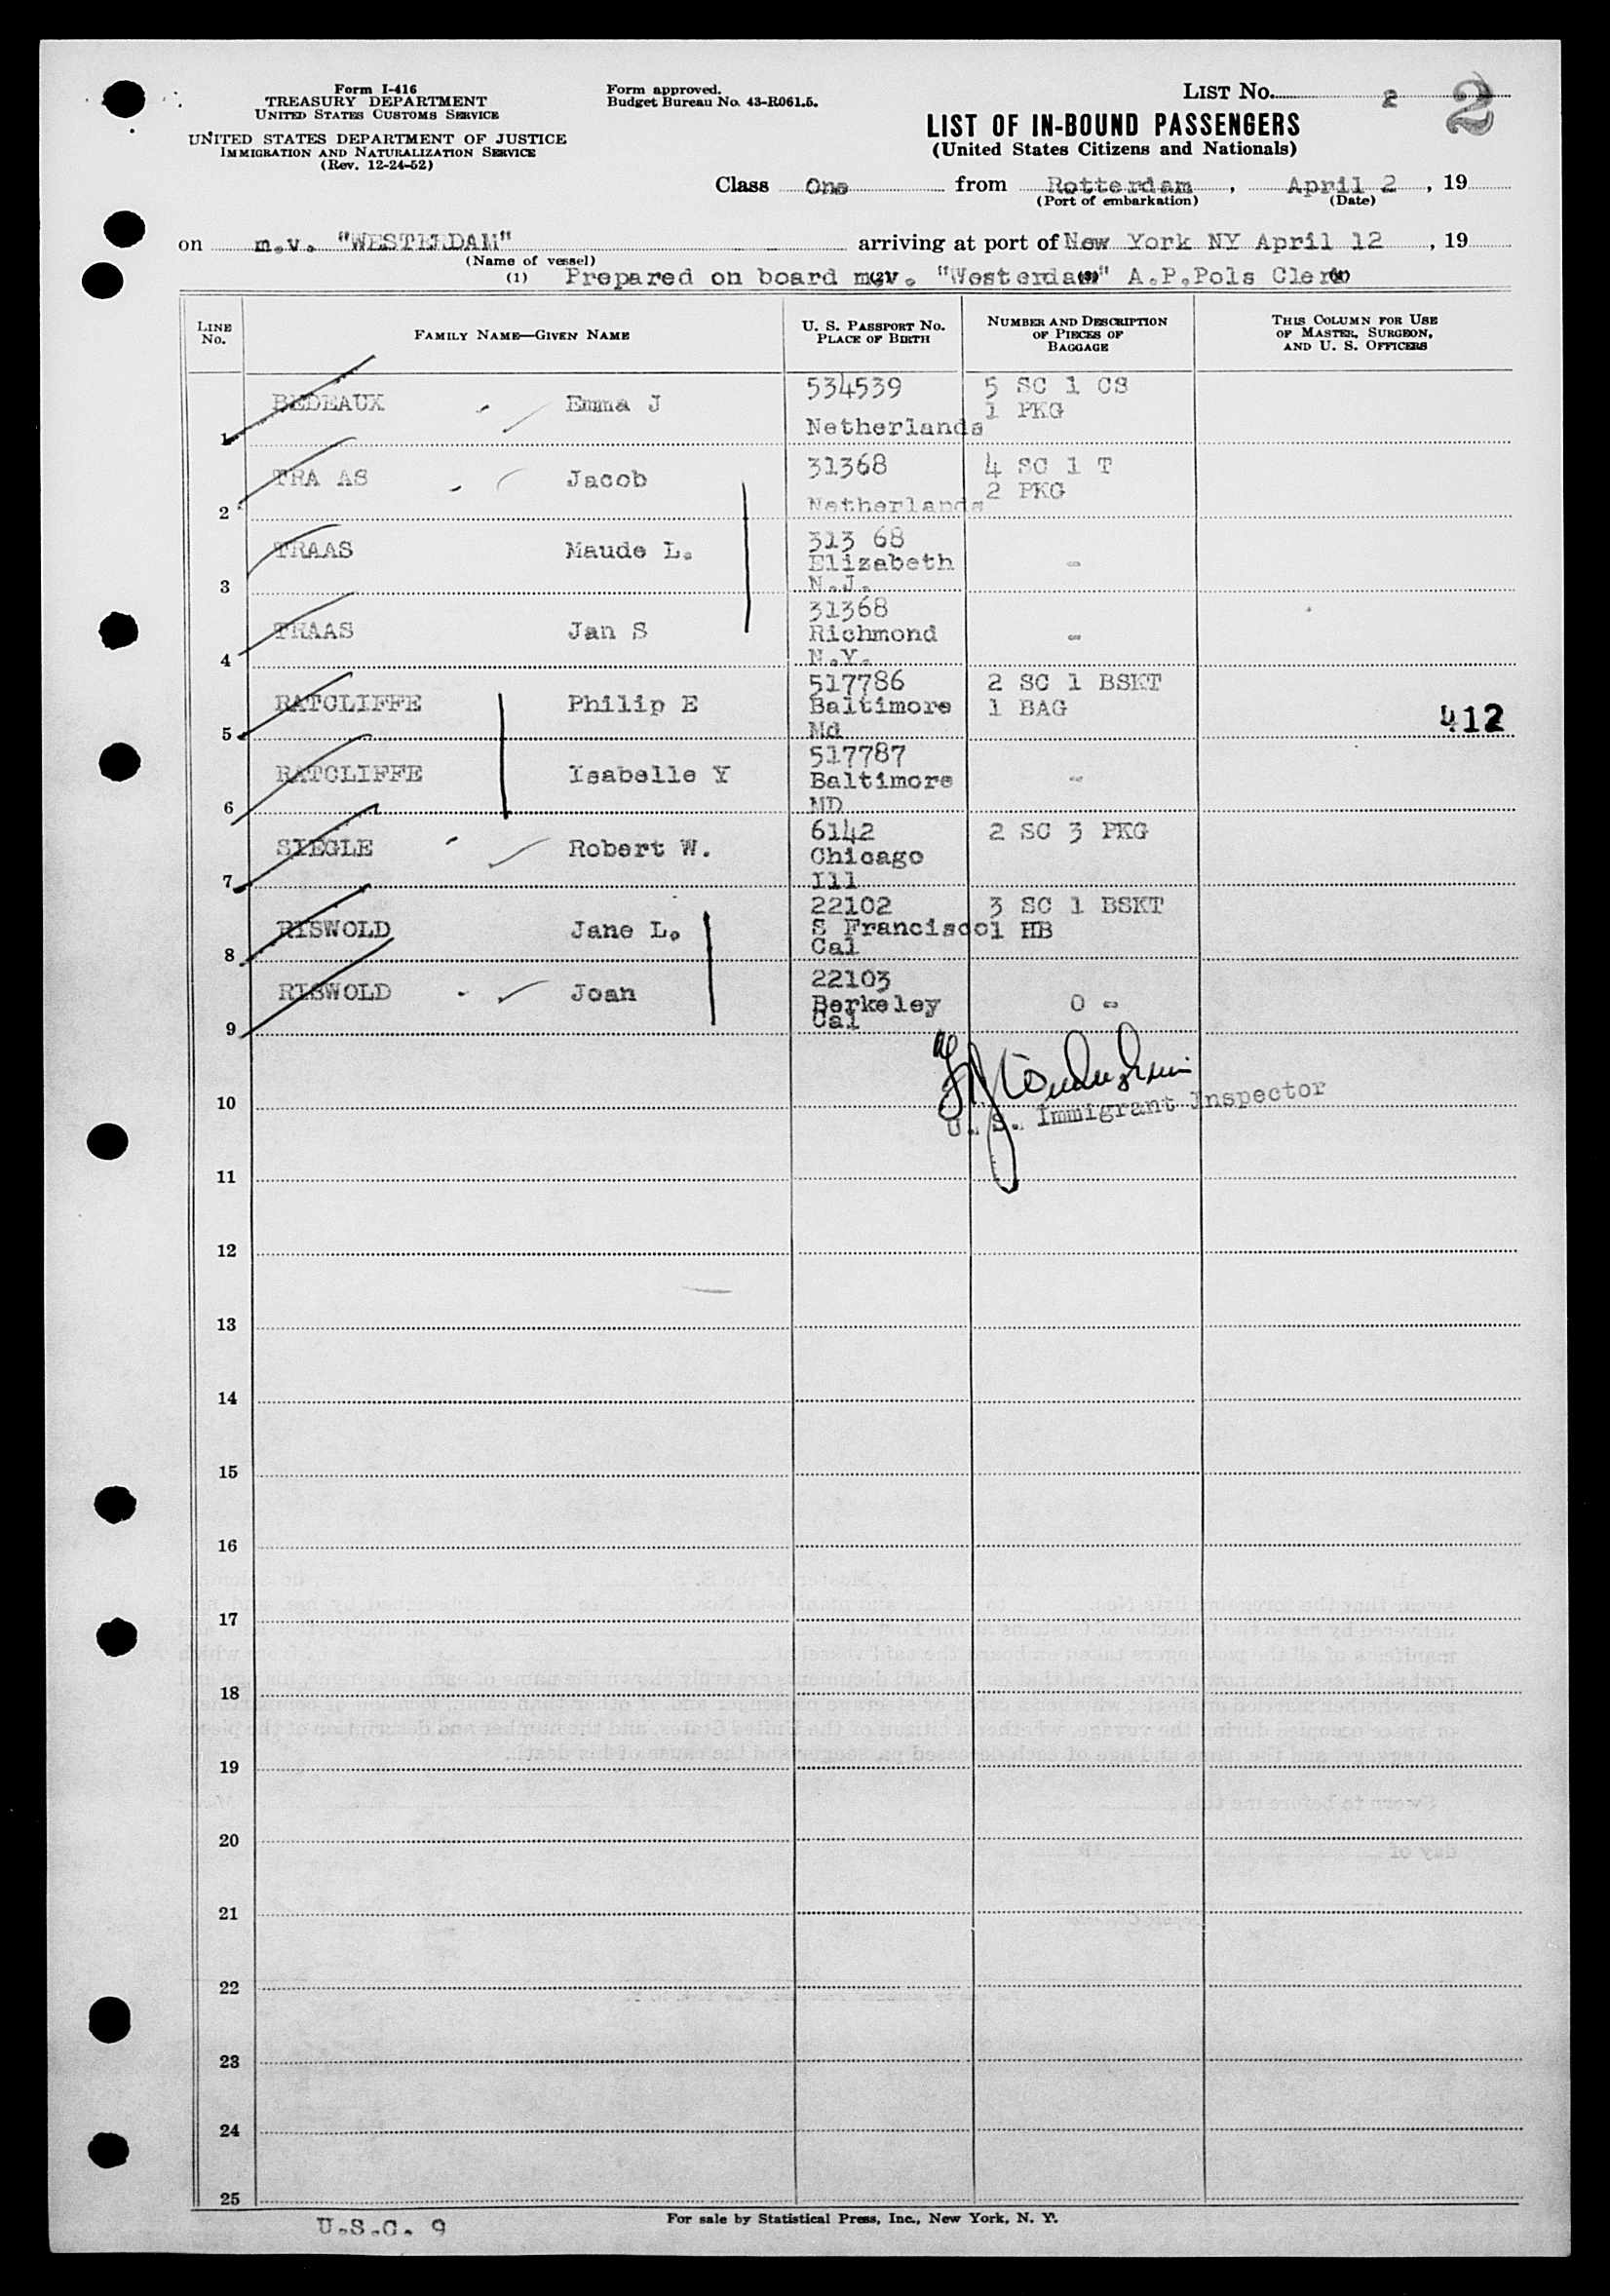 Form I-416
TREASURY DEPARTMENT
UNITED STATES CUSTOMS SERVICE
UNITED STATES DEPARTMENT OF JUSTICE
IMMIGRATION AND NATURALIZATION SERVICE
(Rev. 12-24-52)
Form approved.
Budget Bureau No. 43-R061.5.
LIST No. 2 2
LIST OF IN-BOUND PASSENGERS
(United States Citizens and Nationals)
Class One from Rotterdam, April 2, 19
(Port of embarkation) (Date)
on m.v. "WESTERDAM" arriving at port of New York NY April 12, 19
(Name of vessel)
(1) Prepared on board m.v. "Westerdam" A.P.Pols Clerk
LINE No. FAMILY NAME—GIVEN NAME U. S. PASSPORT No. PLACE OF BIRTH NUMBER AND DESCRIPTION OF PIECES OF BAGGAGE THIS COLUMN FOR USE OF MASTER, SURGEON, AND U. S. OFFICERS
534539 5 SC 1 CS
BEDEAUX Emma J 1 PKG
1 Netherlands
31368 4 SC 1 T
TRA AS Jacob 2 PKG
2 Netherlands
313 68
TRAAS Maude L. Elizabeth -
3 N.J.
31368
TRAAS Jan S Richmond -
4 N.Y.
517786 2 SC 1 BSKT
RATCLIFFE Philip E Baltimore 1 BAG 412
5 Md
517787
RATCLIFFE Isabelle Y Baltimore -
6 MD
6142 2 SC 3 PKG
SIEGLE Robert W. Chicago
7 Ill
22102 3 SC 1 BSKT
RISWOLD Jane L. S Francisco 1 HB
8 Cal
22103
RISWOLD Joan Berkeley 0 -
9 Cal
10
U. S. Immigrant Inspector
11
12
13
14
15
16
17
18
19
20
21
22
23
24
25
U.S.C. 9
For sale by Statistical Press, Inc., New York, N. Y.